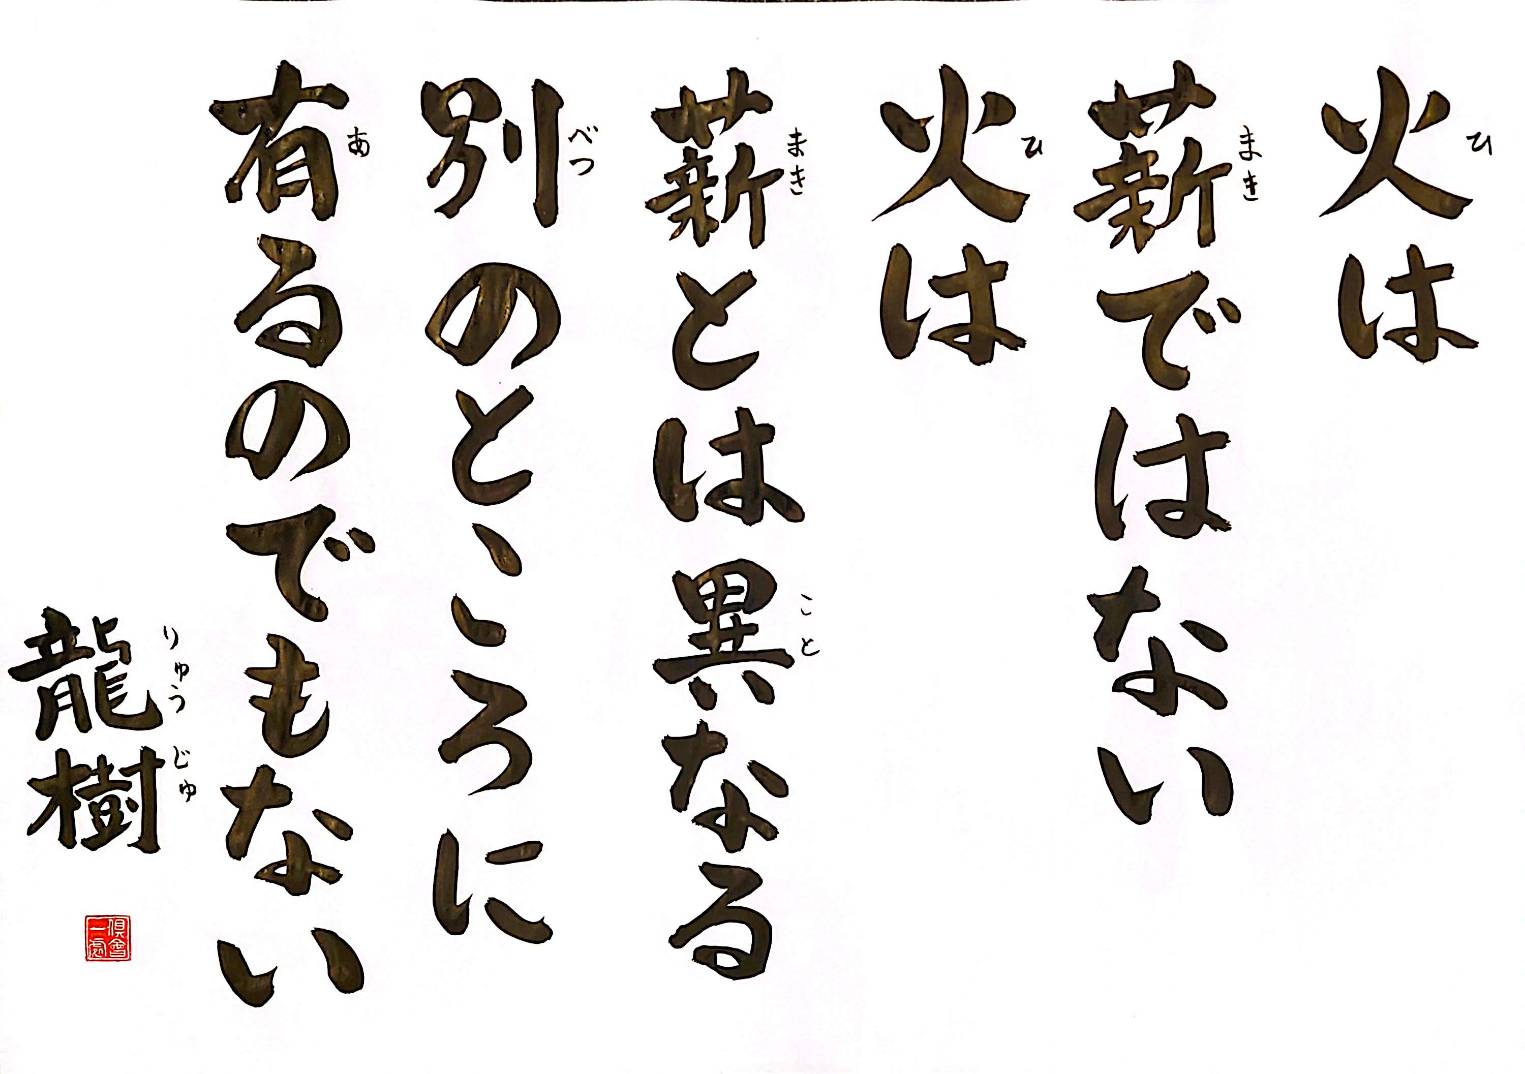 火は
薪ではない
火は
薪とは異なる
別のところに
有るのでもない
龍樹
ひ
まき
ひ
まき
こと
べつ
あ
りゅうじゅ
倶會一処